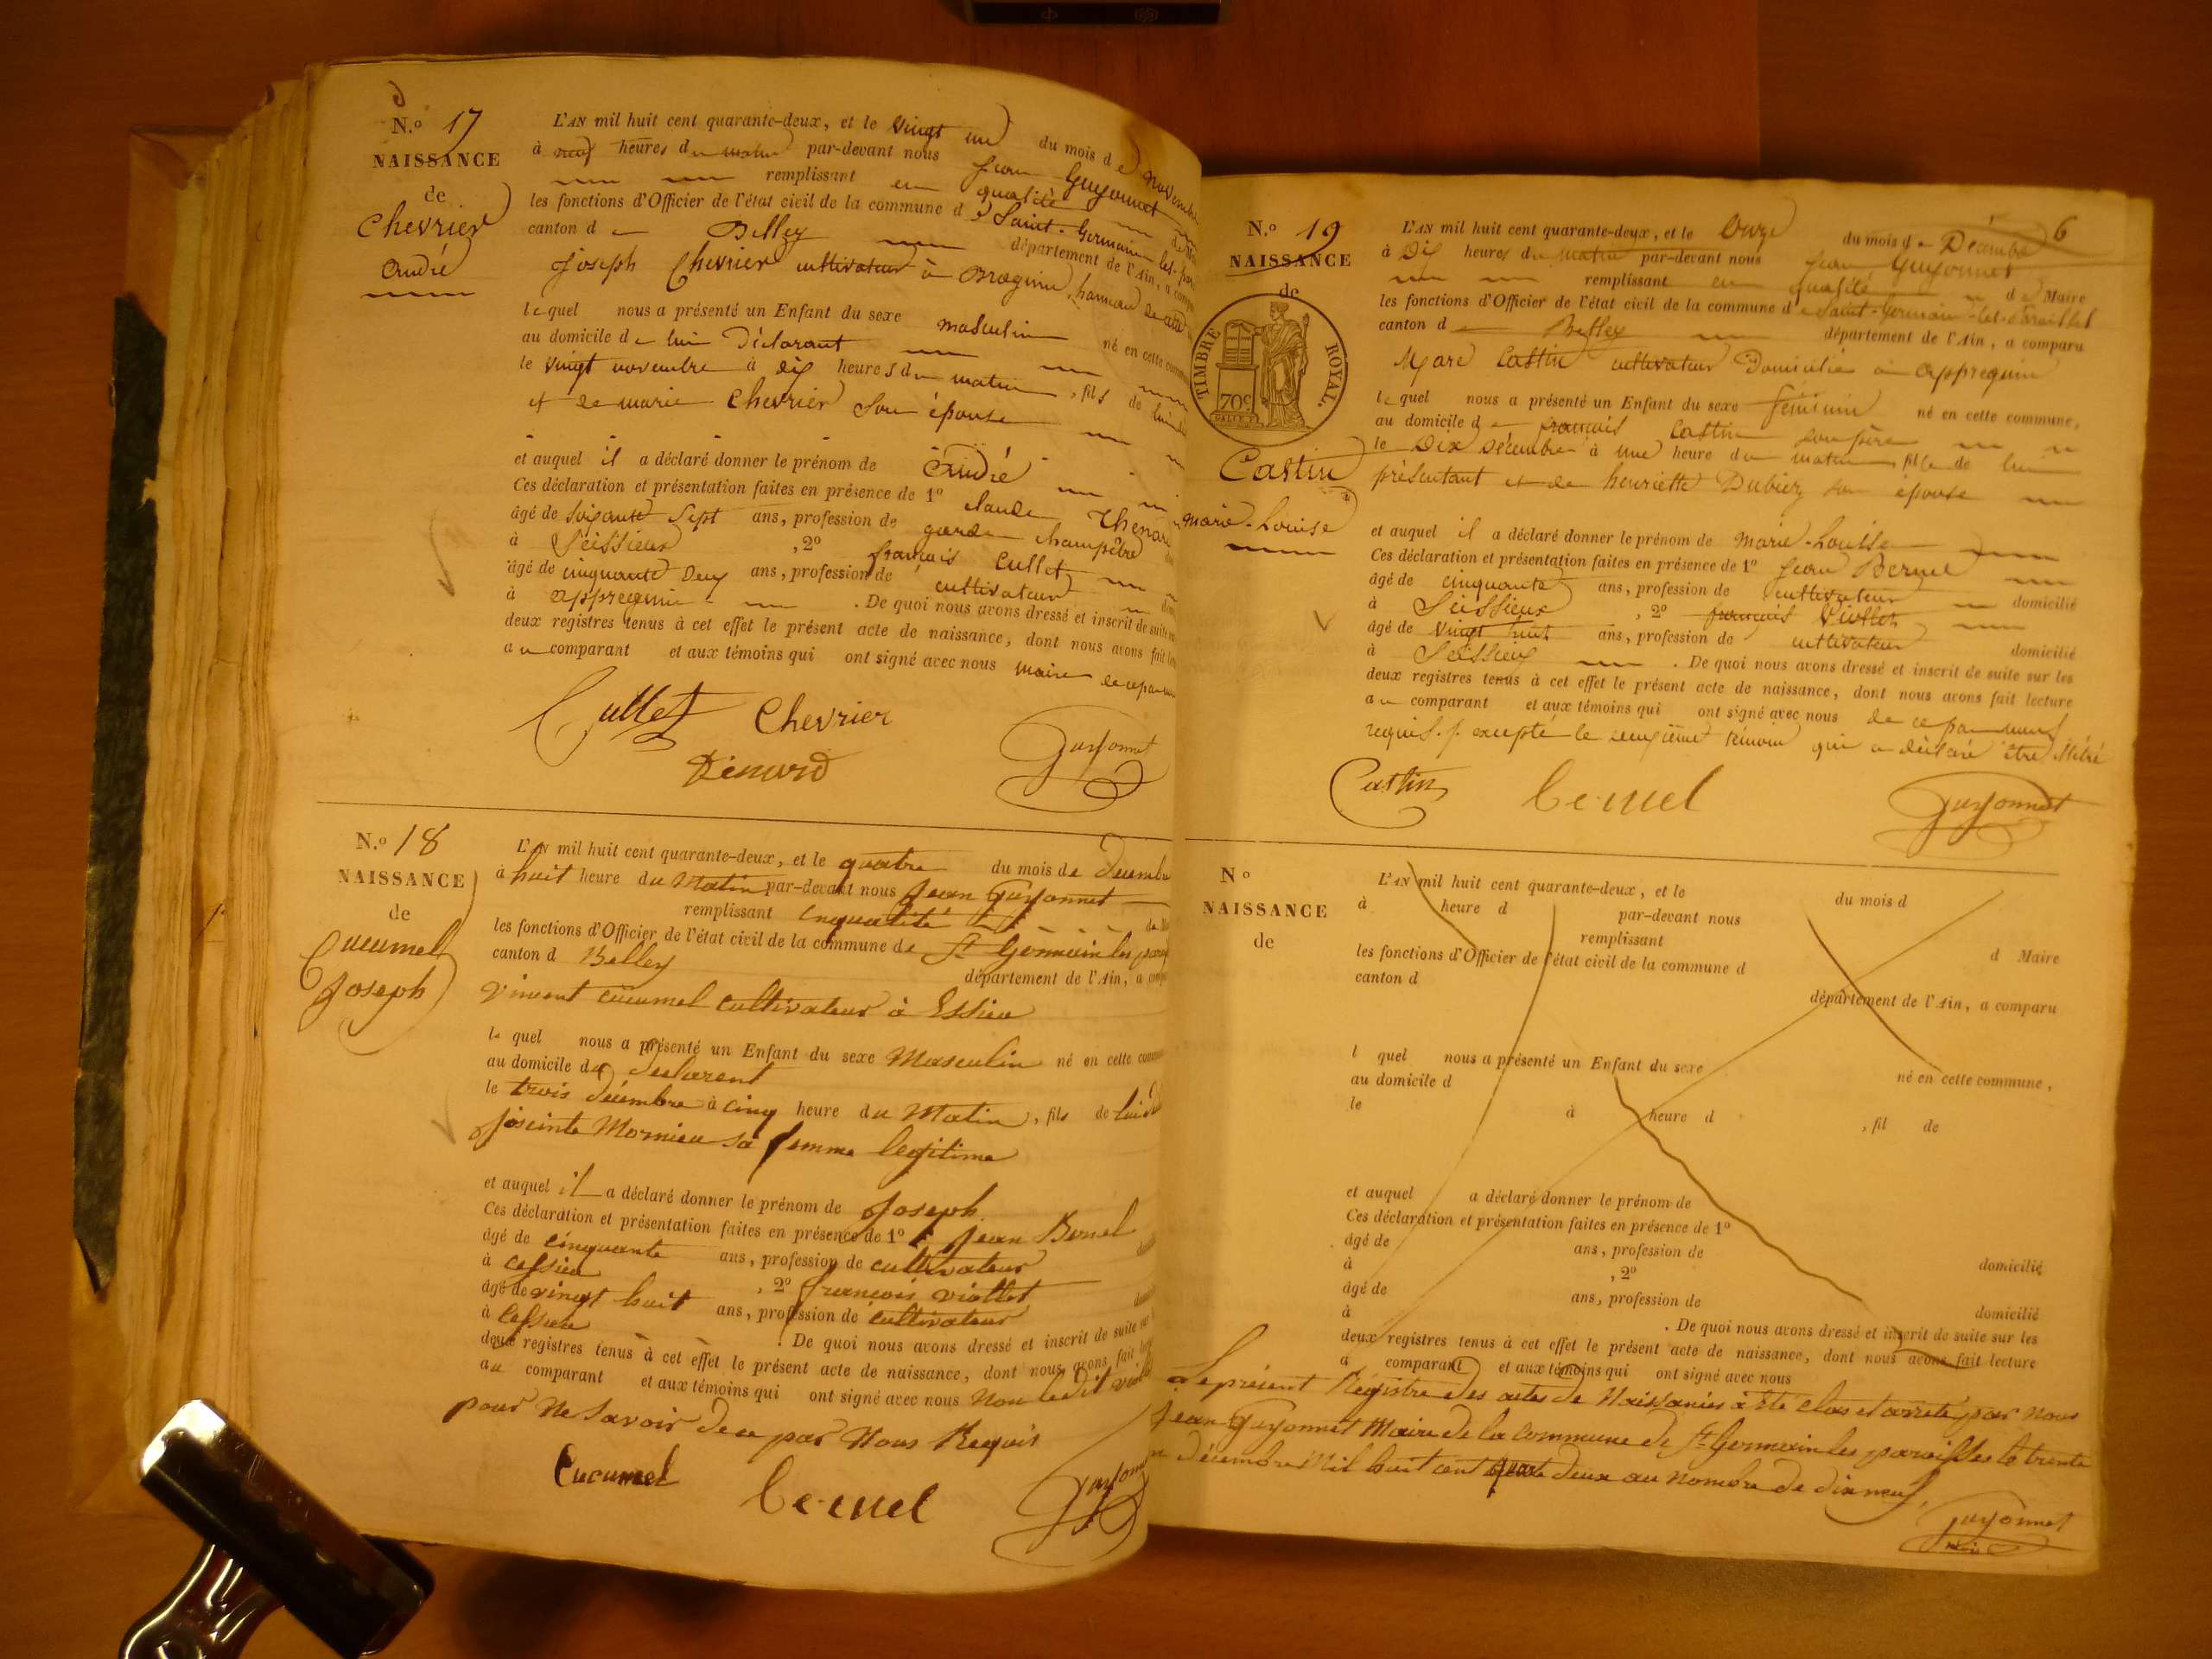 N.º 17
NAISSANCE
de
Chevrier
André
L'AN mil huit cent quarante-deux, et le vingt un du mois de novembre
à neuf heures du matin par-devant nous Jean Guyonnet
remplissant en qualité de
les fonctions d'Officier de l'état civil de la commune de Saint-Germain-les-
canton d Belley département de l'Ain, a
Joseph Chevrier cultivateur à Brognin, hameau de
lequel nous a présenté un Enfant du sexe masculin né en cette
au domicile de lui Déclarant
le vingt novembre à dix heures du matin, fils de lui
et de marie Chevrier son épouse
et auquel il a déclaré donner le prénom de André
Ces déclaration et présentation faites en présence de 1º Claude Thenard
âgé de soixante sept ans, profession de garde champêtre
à Seissieux, 2º français Cullet
âgé de cinquante Deux ans, profession de cultivateur
à appregnin . De quoi nous avons dressé et inscrit de suite
deux registres tenus à cet effet le présent acte de naissance, dont nous avons fait
au comparant et aux témoins qui ont signé avec nous maire de ce par
Cullet Chevrier
Guyonnet
Tenard
N.º 18
NAISSANCE
de
Cucumel
Joseph
L'AN mil huit cent quarante-deux, et le quatre du mois de Décembre
à huit heure du Matin par-devant nous Jean Guyonnet
remplissant en qualité
les fonctions d'Officier de l'état civil de la commune de St Germain les
canton d Belley
département de l'Ain, a
Vincent cucumel cultivateur à Essieu
le quel nous a présenté un Enfant du sexe Masculin né en cette
au domicile du Déclarent
le trois décembre à cinq heure du Matin, fils de lui
josinte Mornieu sa femme legitime
et auquel il a déclaré donner le prénom de Joseph
Ces déclaration et présentation faites en présence de 1º Jean Bernel
âgé de cinquante ans, profession de cultivateur
à cessieu, 2º francois viollet
âgé de vingt huit ans, profession de cultivateur
à Cessieu . De quoi nous avons dressé et inscrit de suite
deux registres tenus à cet effet le présent acte de naissance, dont nous avons fait
au comparant et aux témoins qui ont signé avec nous Non ledit
pour Ne Savoir de ce par Nous Requis
Cucumel
Bernel
Guyonnet
6
N.º 19
NAISSANCE
de
TIMBRE ROYAL.
70c
Castin
marie-Louise
L'AN mil huit cent quarante-deux, et le Onze du mois de Décembre
à Dix heures du matin par-devant nous Jean Guyonnet
remplissant en qualité de Maire
les fonctions d'Officier de l'état civil de la commune de Saint-Germain-les-Paroisses
canton d Belley département de l'Ain, a comparu
Marc Castin cultivateur Domicilié à appregnin
lequel nous a présenté un Enfant du sexe féminin né en cette commune,
au domicile d français Castin son père
le Dix décembre à une heure du matin, fille de lui
présentant et de henriette Dubiez son épouse
et auquel il a déclaré donner le prénom de Marie-Louise
Ces déclaration et présentation faites en présence de 1º Jean Bernel
âgé de cinquante ans, profession de cultivateur domicilié
à Seissieux, 2º français Viollet
âgé de vingt huit ans, profession de cultivateur
à Seissieux . De quoi nous avons dressé et inscrit de suite sur les domicilié
deux registres tenus à cet effet le présent acte de naissance, dont nous avons fait lecture
au comparant et aux témoins qui ont signé avec nous de ce par nous
requis. excepté le deuxième témoin qui a déclaré être illétré
Castin Bernel Guyonnet
Nº
NAISSANCE
de
L'AN mil huit cent quarante-deux, et le du mois d
à heure d par-devant nous
remplissant d Maire
les fonctions d'Officier de l'état civil de la commune d
canton d département de l'Ain, a comparu
l quel nous a présenté un Enfant du sexe né en cette commune,
au domicile d
le à heure d , fil de
et auquel a déclaré donner le prénom de
Ces déclaration et présentation faites en présence de 1º
âgé de ans, profession de domicilié
à , 2º
âgé de ans, profession de domicilié
à . De quoi nous avons dressé et inscrit de suite sur les
deux registres tenus à cet effet le présent acte de naissance, dont nous avons fait lecture
a comparant et aux témoins qui ont signé avec nous
Le présent Régistre des actes de Naissances à été clos et arrêté par nous
Jean Guyonnet Maire de la Commune de St Germain les paroisses le trente
décembre Mil huit cent quarante deux au nombre de dix neuf.
Guyonnet